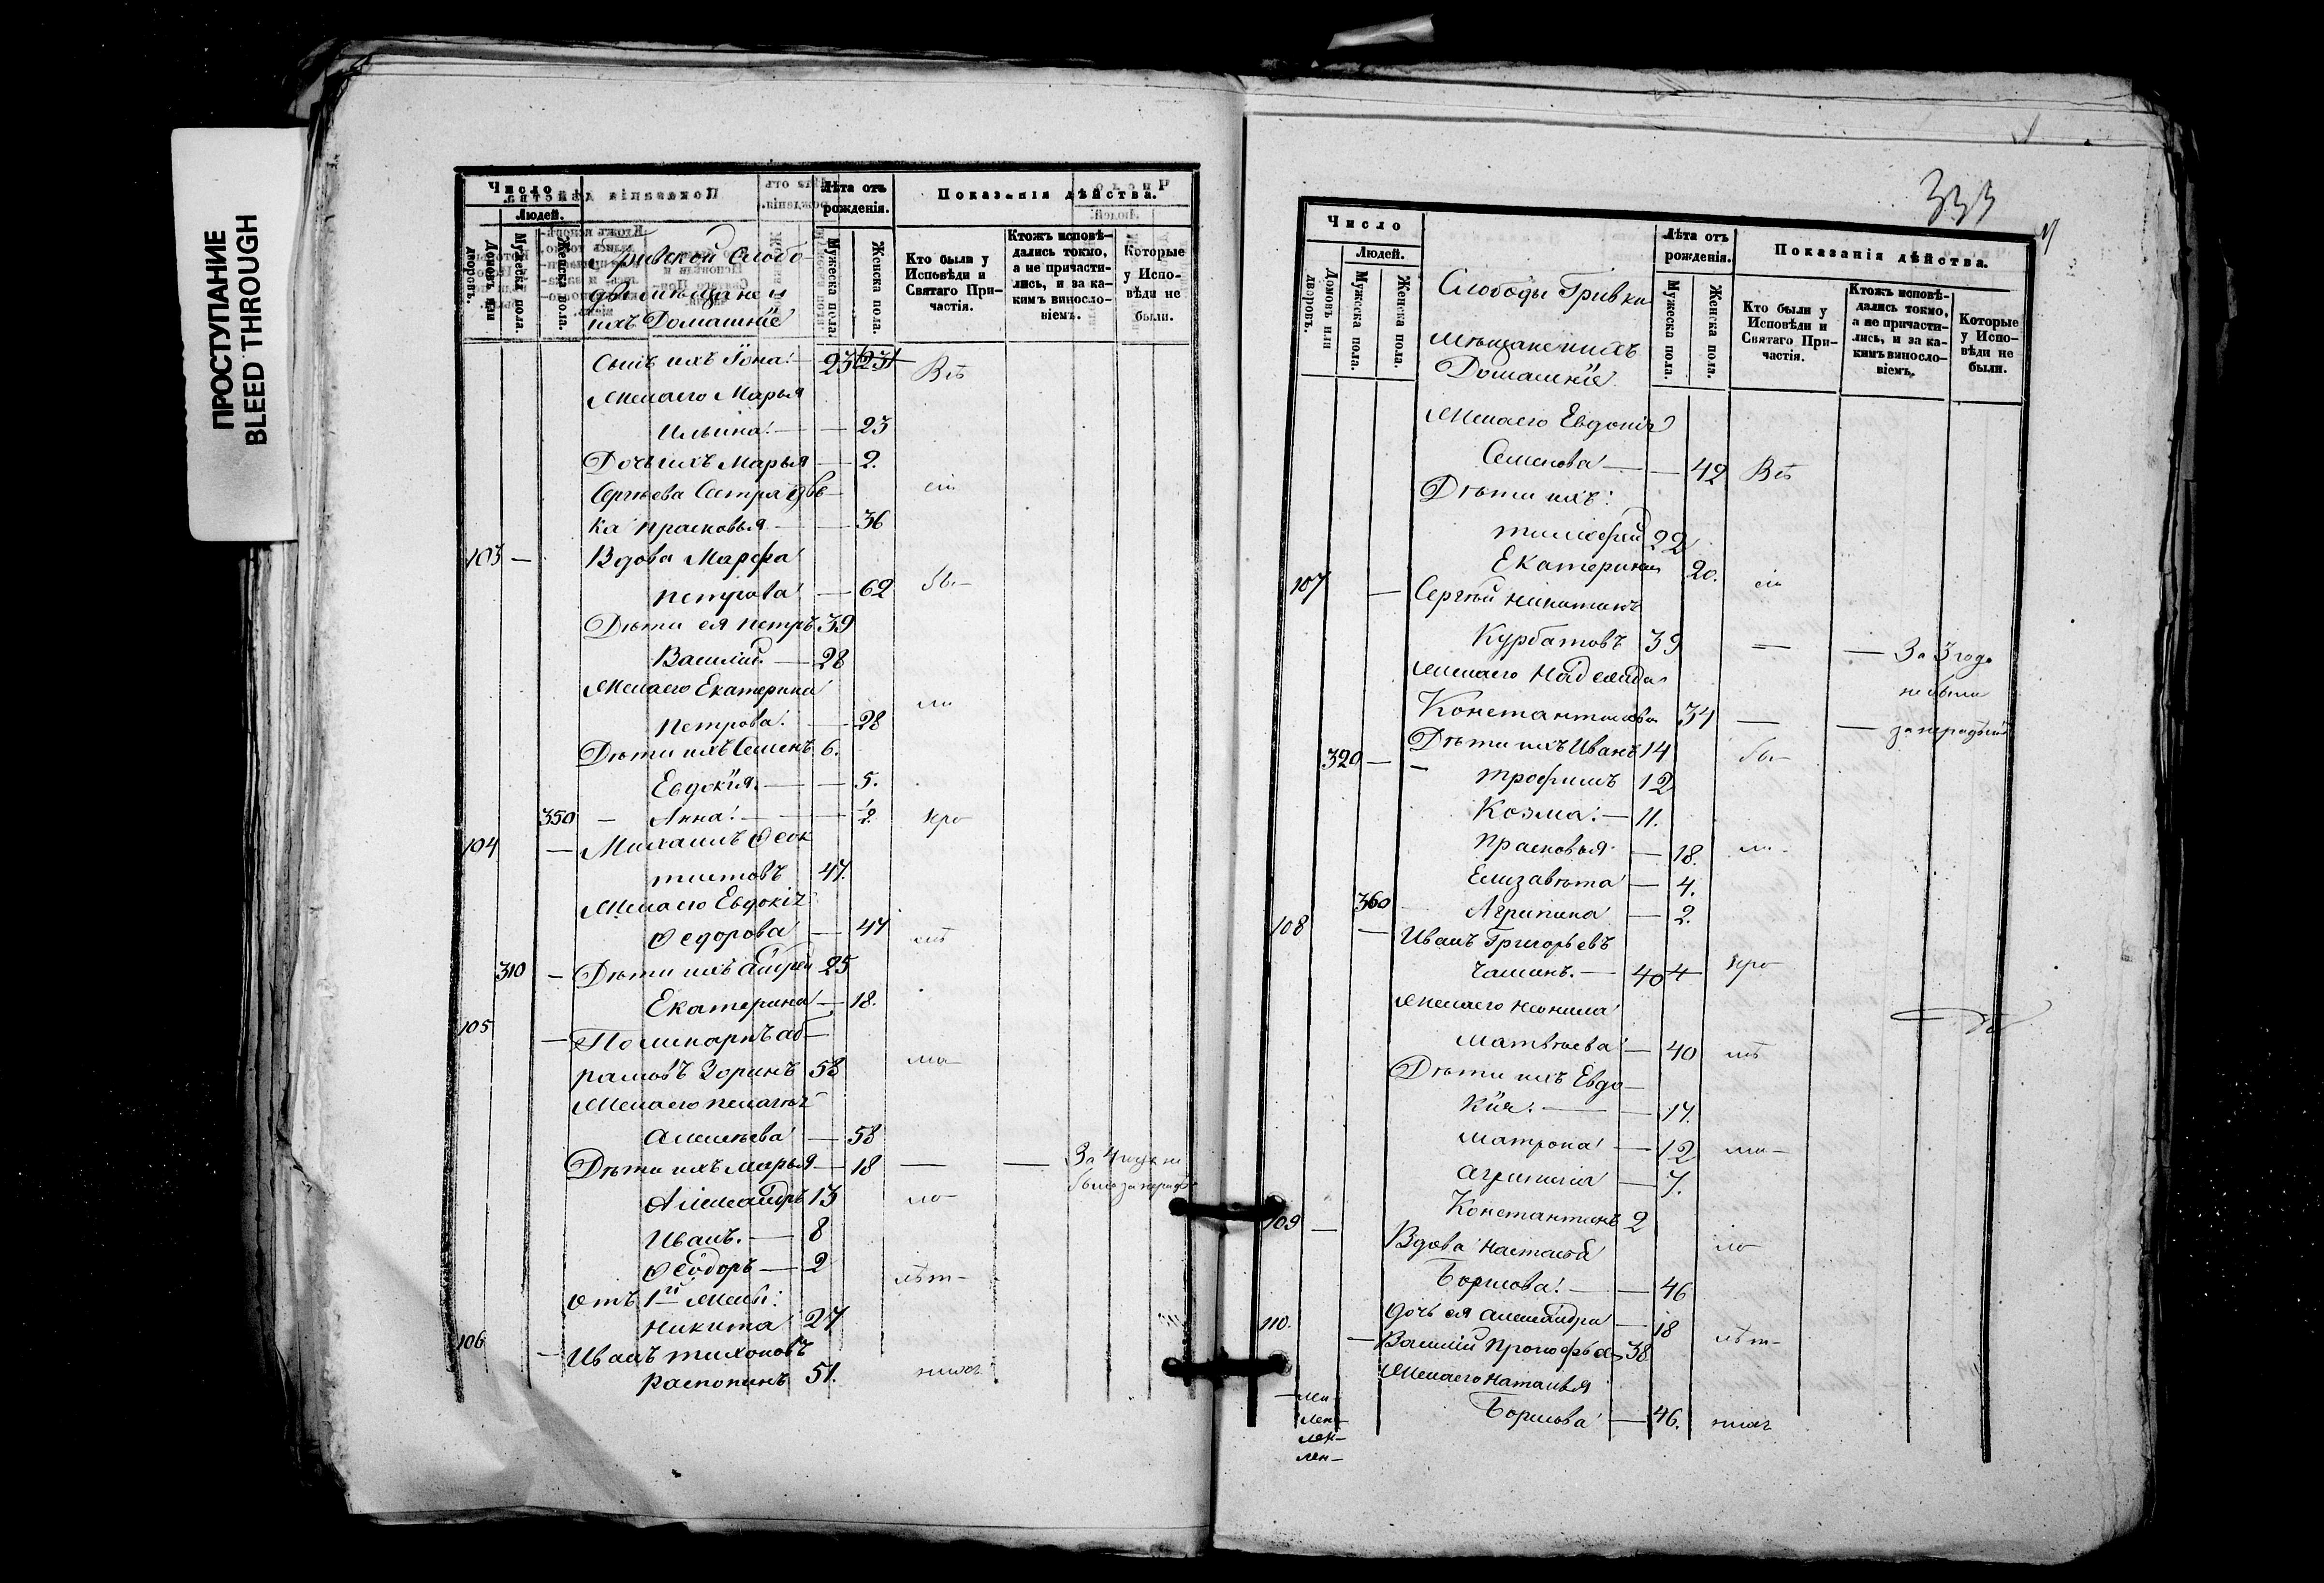 ПРОСТУПАНИЕ
BLEED THROUGH
Число
Людей.
Домовъ или дворовъ.
Мужеска пола.
Женска пола.
Гривской Слобо-
ды мѣщане и
ихъ Домашнiе
Лѣта отъ рожденiя.
Мужеска пола.
Женска пола.
Показанiя дѣйства.
Кто были у Исповѣди и Святаго При-частiя.
Ктожъ исповѣ-дались токмо, а не причасти-лись, и за ка-кимъ винослo-вiемъ.
Которые у Испо-вѣди не были.
Сынъ ихъ Iона 23 Всѣ
Жена его Марья
Ильина — — 23
Дочь ихъ Марья — 2.
Сергѣева Сестра дѣв-
ка Прасковья — — 36
103 — Вдова Марфа
Петрова — 62 бы-
Дѣти ея Петръ 39
Василiй — 28
Жена его Екатерина
Петрова — 28 ли
Дѣти ихъ Семенъ 6.
Евдокiя — — 5.
350 — Анна — — 1/2 кро
104 — Михаилъ Ѳеок
тистовъ 47.
Жена его Евдокiя
Ѳедорова — 47 мѣ
310 — Дѣти ихъ Андрей 25
Екатерина — 18.
105 — Поликарпъ Аб-
рамовъ Зоринъ 58 ма-
Жена его Пелагея
Алексѣева — 58
Дѣти ихъ Марья — 18 — — За 4 года не
Александръ 13 ло- были за нерад.
Иванъ. — 8
Ѳеодоръ — 2 лѣт-
отъ 1й Жены:
Никита 27
106 — Иванъ Тихоновъ
Распопинъ 51. нихъ
333
Число
Людей.
Домовъ или дворовъ.
Мужеска пола.
Женска пола.
Слободы Гривки
мѣщане и ихъ
Домашнiе
Лѣта отъ рожденiя.
Мужеска пола.
Женска пола.
Показанiя дѣйства.
Кто были у Исповѣди и Святаго При-частiя.
Ктожъ исповѣ-дались токмо, а не причасти-лись, и за ка-кимъ винослo-вiемъ.
Которые у Испо-вѣди не были.
Жена его Евдокiя
Семенова — — 42 Всѣ
Дѣти ихъ:
Тимофей 22
Екатерина 20. сiи
107 — Сергѣй Никитинъ
Курбатовъ 39 — — За 3 года
Жена его Надежда не были
Константинова 34 — — за нерадѣнiе
320 — Дѣти ихъ Иванъ 14 бы-
Трофимъ 12
Козма — 11.
Прасковья — 18. ли-
Елизавѣта — 4.
360 Агрипина — 2.
108 — Иванъ Григорьевъ
40 кро-
Жена его Неонила
Матвѣева — 40 мѣ
Дѣти ихъ Евдо-
кiя. — — 17.
Матрона — 12 ма-
Агрипина — 7.
Константинъ 2
109 — Вдова Настасья ло
Борисова — — 46
Дочь ея Александра — 18
110. — Василiй Прокофьев 38 лѣт-
Жена его Наталья
Борисова — 46. нихъ